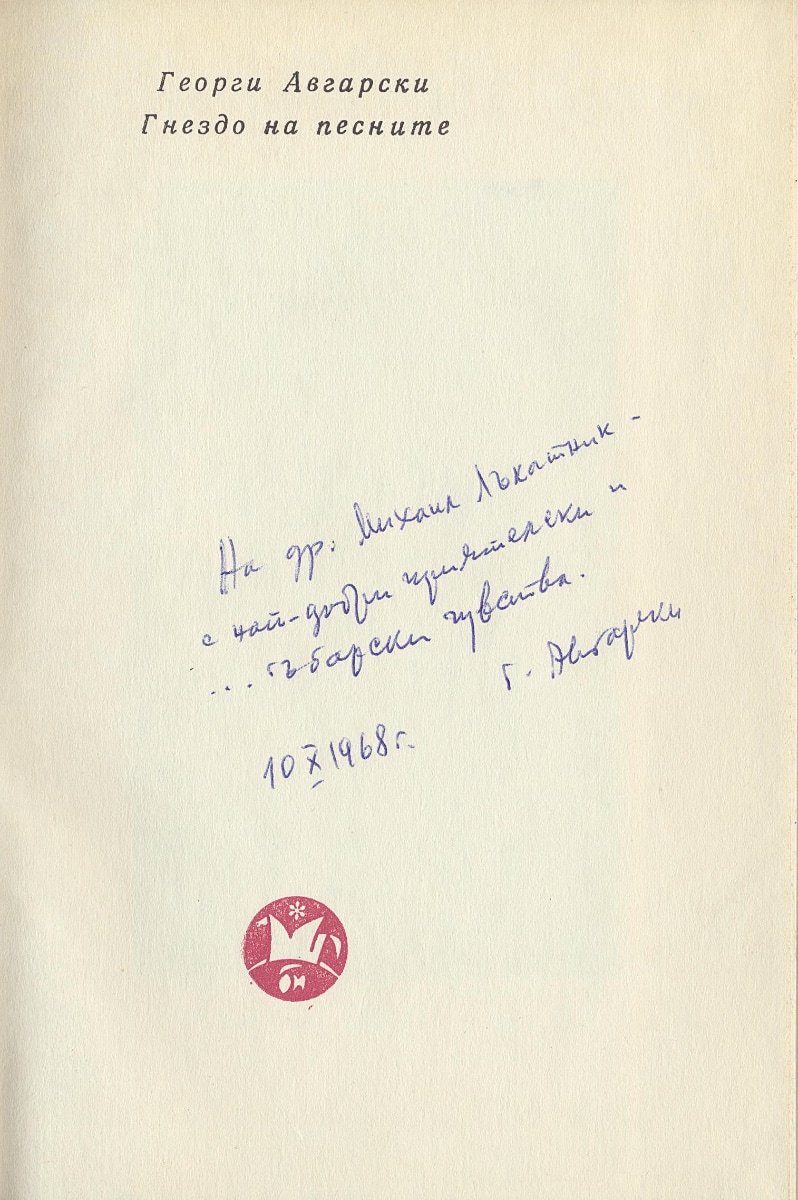 Георги Авгарски
Гнездо на песните
На др. Михаил Лъкатник -
с най-добри приятелски и
... гъбарски чувства.
Г. Авгарски
10 X 1968 г.